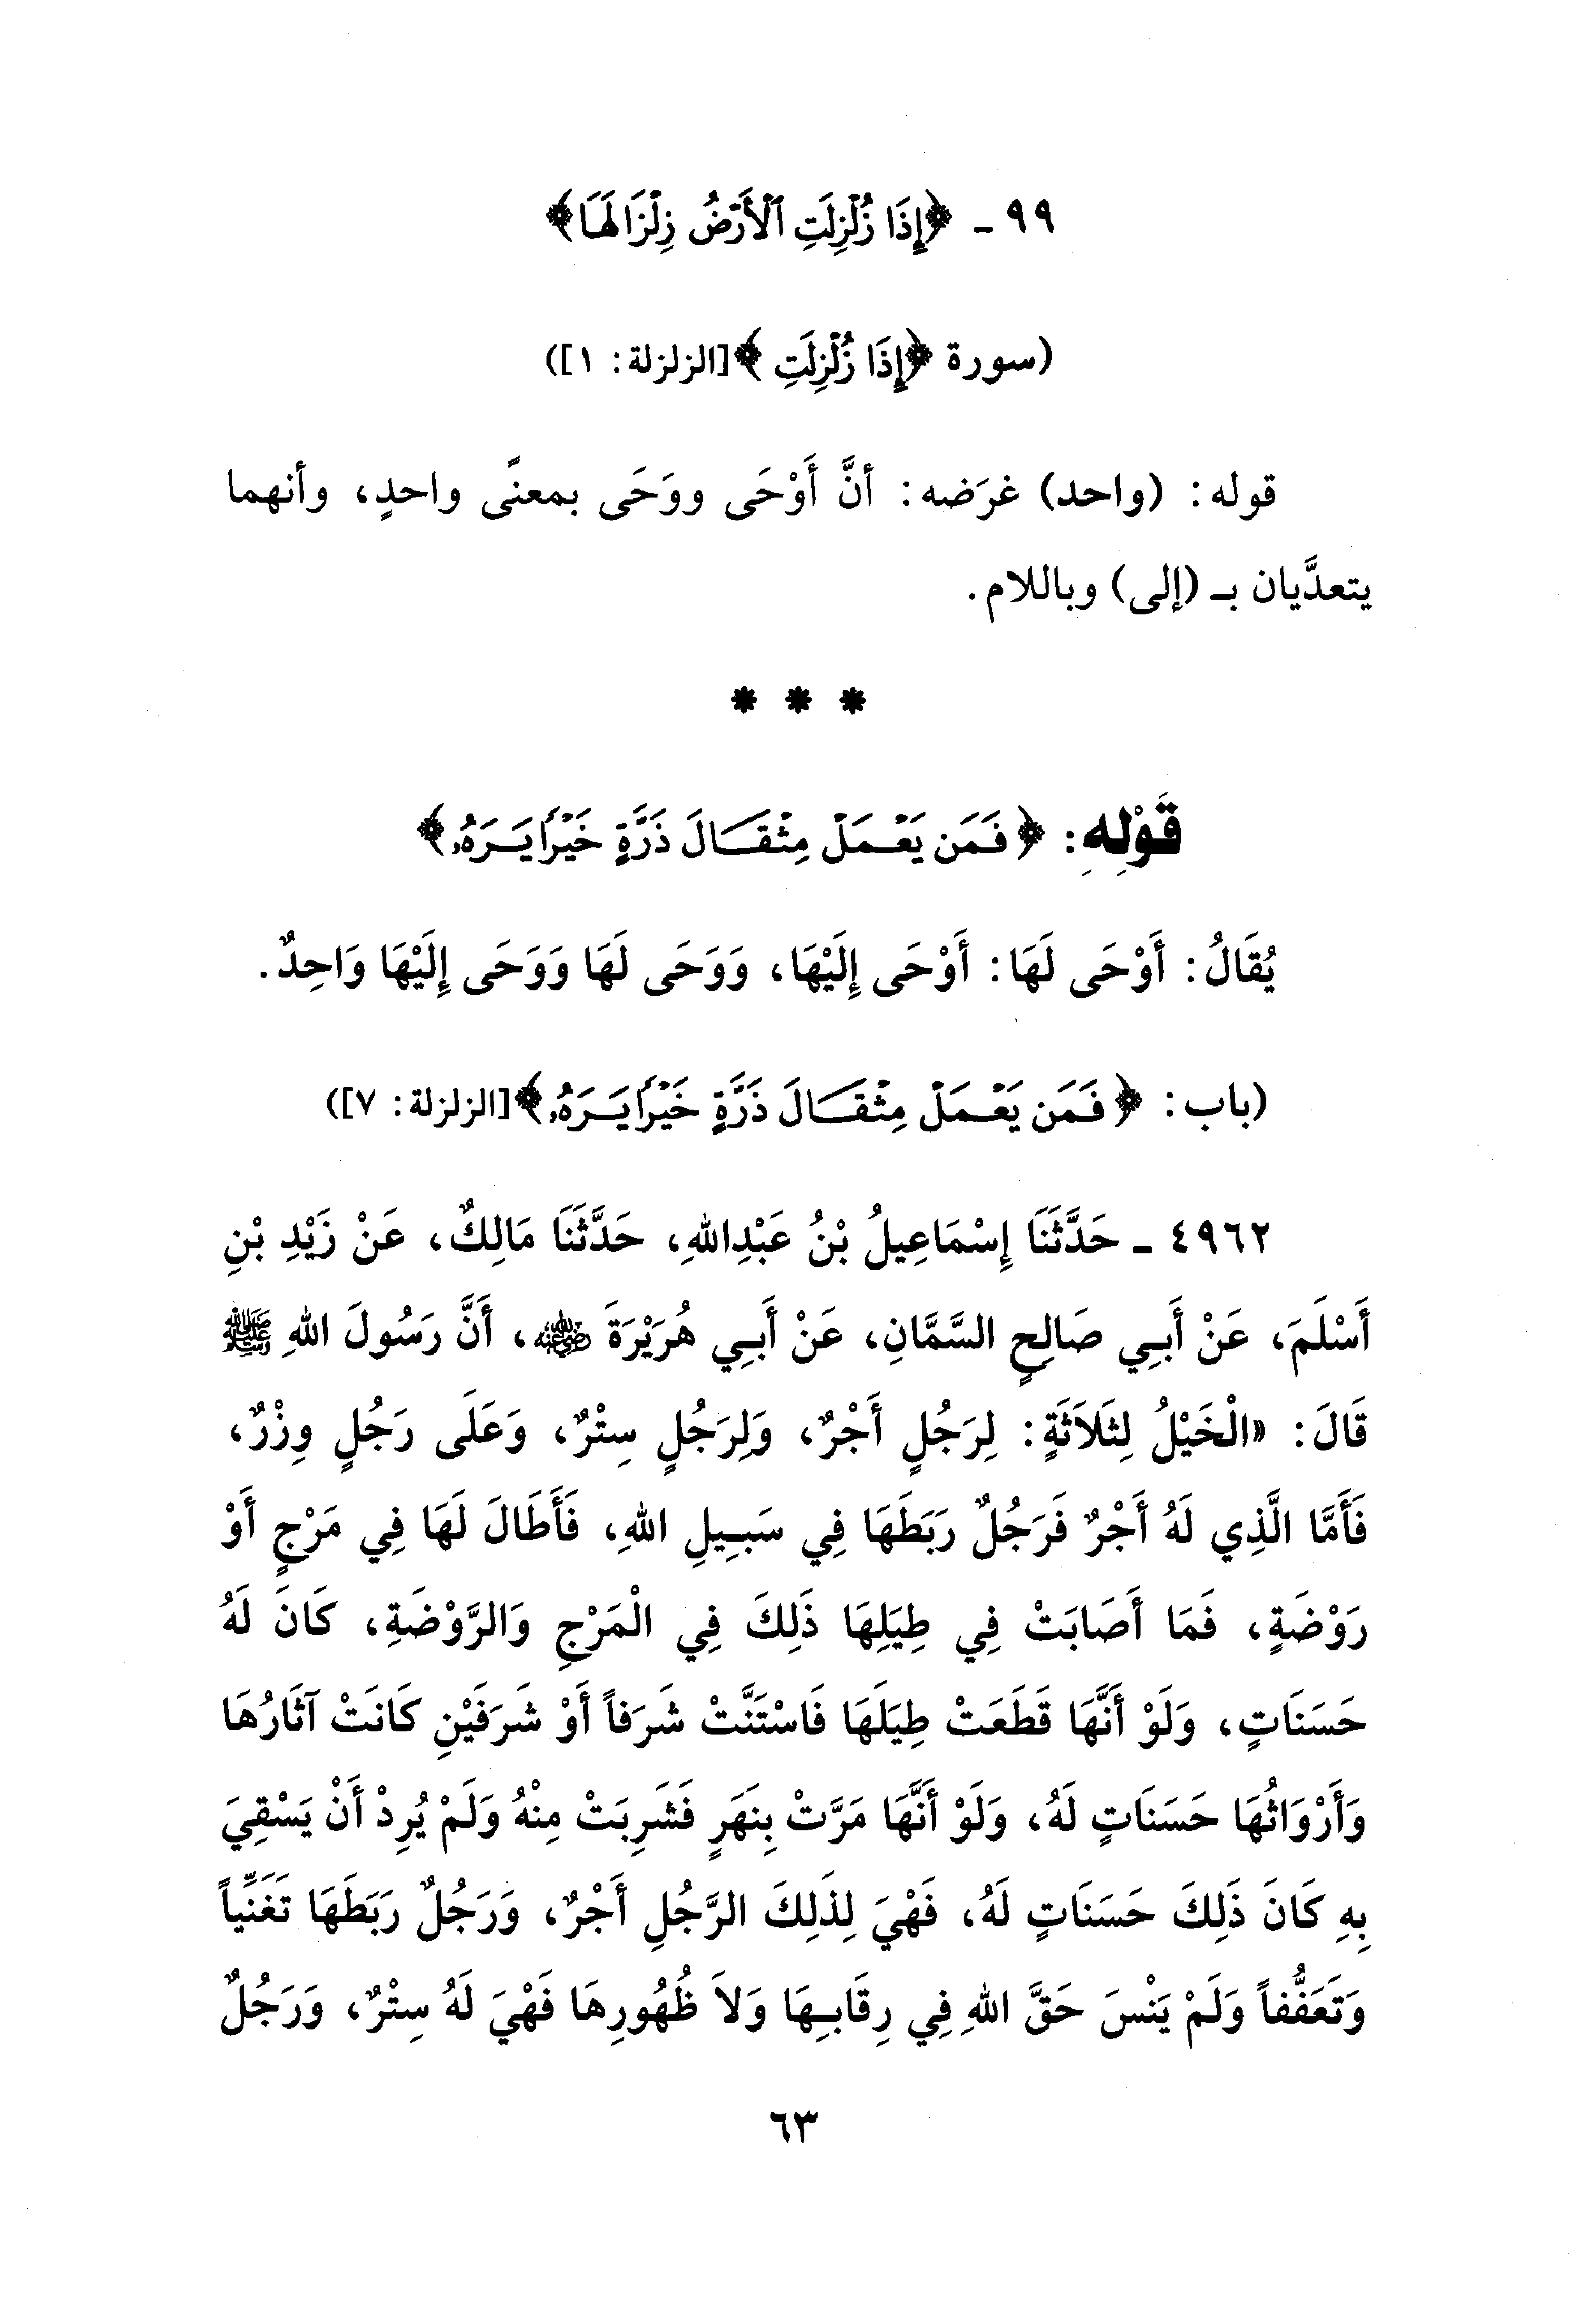 ٩٩ - ﴿إِذَا زُلْزِلَتِ ٱلْأَرْضُ زِلْزَالَهَا﴾
(سورة ﴿إِذَا زُلْزِلَتِ﴾ [الزلزلة: ١])
قوله: (واحد) غرَضه: أنَّ أَوْحَى ووَحَى بمعنًى واحدٍ، وأنهما
يتعدَّيان بـ (إلى) وباللام.
* * *
قَوْلِهِ: ﴿فَمَن يَعْمَلْ مِثْقَالَ ذَرَّةٍ خَيْرًا يَرَهُۥ﴾
يُقَالُ: أَوْحَى لَهَا: أَوْحَى إِلَيْهَا، وَوَحَى لَهَا وَوَحَى إِلَيْهَا وَاحِدٌ.
(باب: ﴿فَمَن يَعْمَلْ مِثْقَالَ ذَرَّةٍ خَيْرًا يَرَهُۥ﴾ [الزلزلة: ٧])
٤٩٦٢ - حَدَّثَنَا إِسْمَاعِيلُ بْنُ عَبْدِاللهِ، حَدَّثَنَا مَالِكٌ، عَنْ زَيْدِ بْنِ
أَسْلَمَ، عَنْ أَبِي صَالِحٍ السَّمَّانِ، عَنْ أَبِي هُرَيْرَةَ رضي الله عنه، أَنَّ رَسُولَ اللهِ ﷺ
قَالَ: «الْخَيْلُ لِثَلاَثَةٍ: لِرَجُلٍ أَجْرٌ، وَلِرَجُلٍ سِتْرٌ، وَعَلَى رَجُلٍ وِزْرٌ،
فَأَمَّا الَّذِي لَهُ أَجْرٌ فَرَجُلٌ رَبَطَهَا فِي سَبِيلِ اللهِ، فَأَطَالَ لَهَا فِي مَرْجٍ أَوْ
رَوْضَةٍ، فَمَا أَصَابَتْ فِي طِيَلِهَا ذَلِكَ فِي الْمَرْجِ وَالرَّوْضَةِ، كَانَ لَهُ
حَسَنَاتٍ، وَلَوْ أَنَّهَا قَطَعَتْ طِيَلَهَا فَاسْتَنَّتْ شَرَفاً أَوْ شَرَفَيْنِ كَانَتْ آثَارُهَا
وَأَرْوَاثُهَا حَسَنَاتٍ لَهُ، وَلَوْ أَنَّهَا مَرَّتْ بِنَهَرٍ فَشَرِبَتْ مِنْهُ وَلَمْ يُرِدْ أَنْ يَسْقِيَ
بِهِ كَانَ ذَلِكَ حَسَنَاتٍ لَهُ، فَهْيَ لِذَلِكَ الرَّجُلِ أَجْرٌ، وَرَجُلٌ رَبَطَهَا تَغَنِّياً
وَتَعَفُّفاً وَلَمْ يَنْسَ حَقَّ اللهِ فِي رِقَابِهَا وَلاَ ظُهُورِهَا فَهْيَ لَهُ سِتْرٌ، وَرَجُلٌ
٦٣